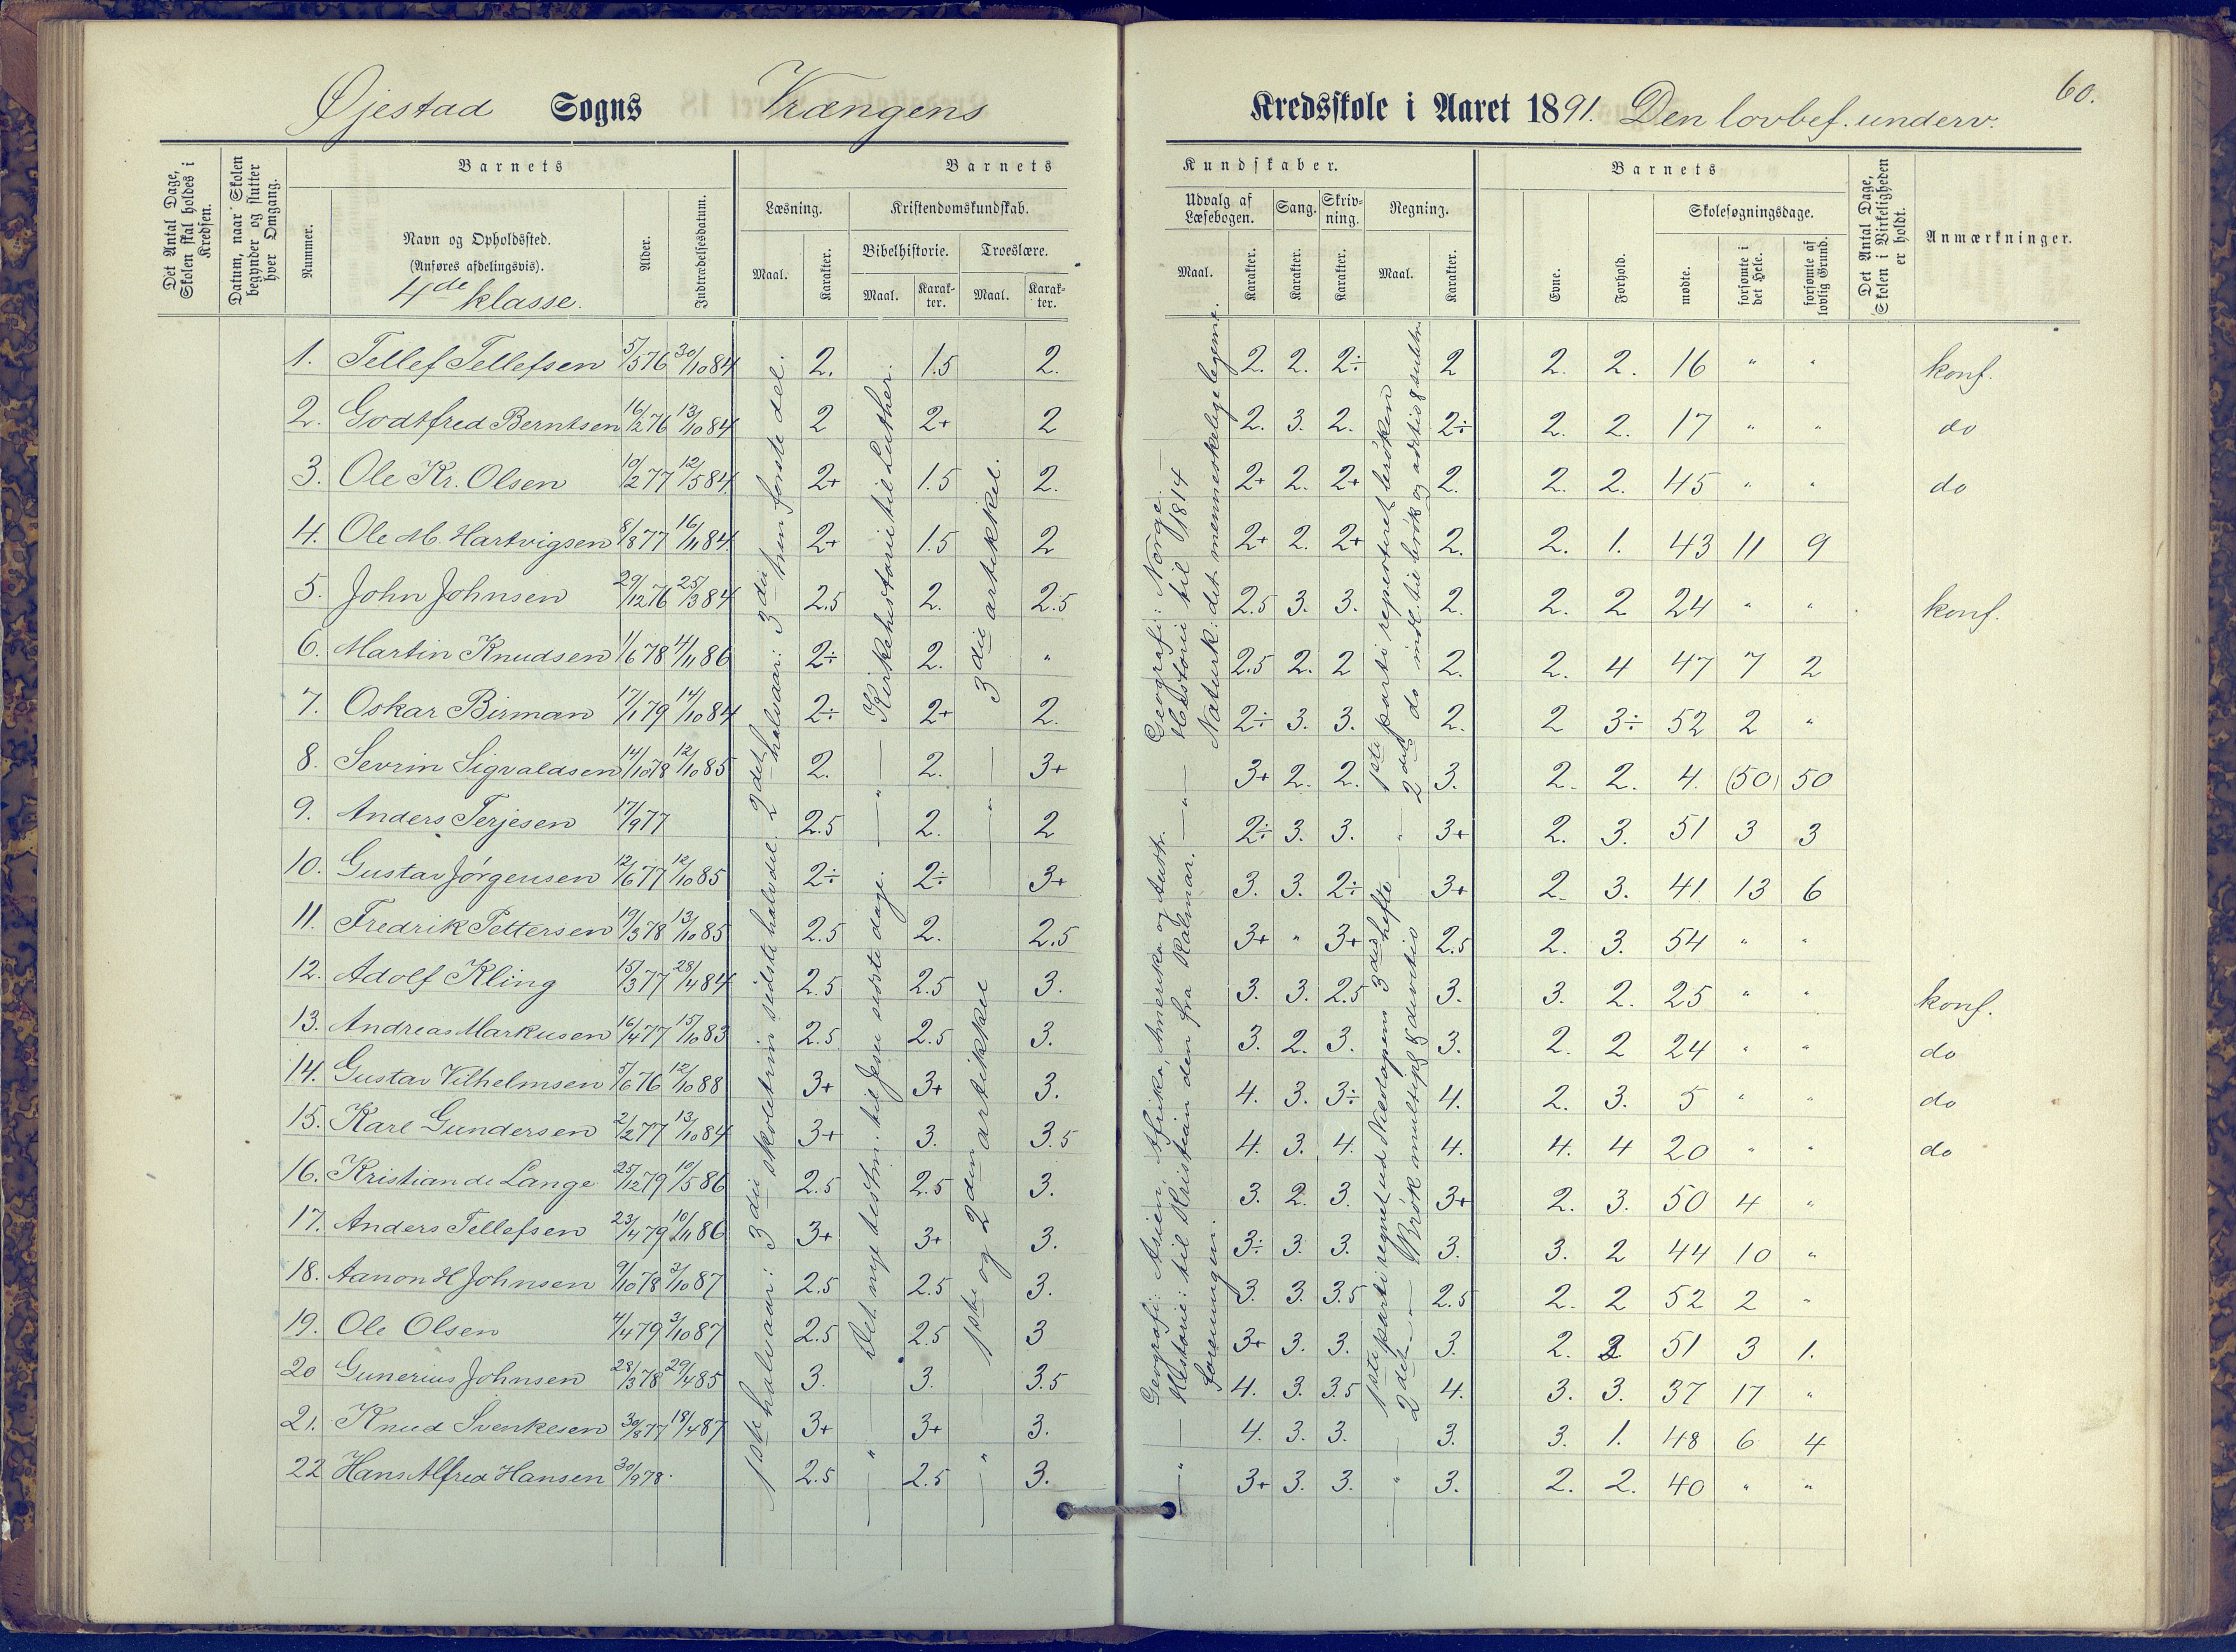 60.
Øjestad Sogns Vrængens Kredsskole i Aaret 1891. Den lovbef. underv.
Det Antal Dage, Skolen skal holdes i Kredsen.
Datum, naar Skolen begynder og slutter hver Omgang.
Barnets
Nummer.
Navn og Opholdssted.
(Anføres afdelingsvis).
4de klasse.
Alder.
Indtrædelsesdatum.
Barnets Kundskaber.
Læsning.
Maal.
Karakter.
Kristendomskundskab.
Bibelhistorie.
Maal.
Karakter.
Troeslære.
Maal.
Karakter.
Udvalg af Læsebogen.
Maal.
Karakter.
Sang.
Karakter.
Skrivning.
Karakter.
Regning.
Maal.
Karakter.
Barnets
Evne.
Forhold.
Skolesøgningsdage.
mødte.
forsømte i det Hele.
forsømte af lovlig Grund.
Det Antal Dage, Skolen i Virkeligheden er holdt.
Anmærkninger.
1. Tellef Tellefsen 5/576 30/1084 2. 1.5 2. 2. 2. 2÷ 2 2. 2. 16 " " konf.
2. Godtfred Berntsen 16/276 13/1084 2 2+ 2 2. 3. 2. 2÷ 2. 2. 17 " " do
3. Ole Kr. Olsen 10/277 12/584. 2+ 1.5 2. 2+ 2. 2+ 2. 2. 2. 45 " " do
4. Ole M. Hartvigsen 8/877 16/1184. 2+ 1.5 2 2+ 2. 2+ 2. 2. 1. 43 11 9
5. John Johnsen 29/1276 25/384 2.5 2. 2.5 2.5 3. 3. 2. 2. 2 24 " " konf.
6. Martin Knudsen 1/678 4/1186 2÷ 2. " 2.5 2. 2 2. 2. 4 47 7 2
7. Oskar Birman 17/179 14/1084 2÷ 2+ 2. 2÷ 3. 3. 2. 2 3÷ 52 2 "
8. Sevrin Sigvaldsen 14/1078 12/1085 2. 2. 3+ 3+ 2. 2. 3. 2. 2. 4. (50) 50
9. Anders Terjesen 17/977 2.5 2. 2 2÷ 3. 3. 3+ 2. 3. 51 3 3
10. Gustav Jørgensen 12/677 12/1085 2÷ 2÷ 3+ 3. 3. 2÷ 3+ 2. 3. 41 13 6
11. Fredrik Pettersen 19/378 13/1085 2.5 2. 2.5 3+ " 3+ 2.5 2. 3. 54 " "
12. Adolf Kling 15/377 28/484 2.5 2.5 3. 3. 3. 2.5 3. 3. 2. 25 " " konf.
13. Andreas Markusen 16/477 15/1083 2.5 2.5 3. 3. 2. 3. 3. 2. 2 24 " " do
14. Gustav Vilhelmsen 5/676 12/1088 3+ 3+ 3. 4. 3. 3÷ 4. 2. 3. 5 " " do
15. Karl Gundersen 2/277 13/1084 3+ 3. 3.5 4. 3. 4. 4. 4. 4 20 " " do
16. Kristian de Lange 25/1279 10/586 2.5 2.5 3. 3. 2. 3. 3+ 2. 3. 50 4 "
17. Anders Tellefsen 23/479 10/1186 3+ 3+ 3. 3÷ 3. 3. 3. 3. 2 44 10 "
18. Aanon H Johnsen 9/1078 3/1087 2.5 2.5 3. 3. 3. 3.5 2.5 2. 2 52 2 "
19. Ole Olsen 4/479 3/1087 2.5 2.5 3 3+ 3. 3. 3. 2. 51 3 1.
20 Gunerius Johnsen 28/378 29/485 3. 3. 3.5 4. 3. 3.5 4. 3. 3. 37 17 "
21. Knud Svenkesen 30/877 18/487 3+ 3+ 3. 4. 3. 3. 3. 3. 1. 48 6 4
22 Hans Alfred Hansen 30/978. 2.5 2.5 3. 3+ 3. 3. 3. 2. 2. 40 " "
1ste halvaar: 3die skoletrin sidste halvdel. 2det halvaar: 3die trin første del.
Kirkehistorie til Luther.
Det nye testm. til Jesu sidste dage.
3die artikkel.
1ste og 2den artikkel
Geografi: Norge.
Historie til 1814
Naturk: det menneskelige legeme.
Geografi: Asien, Afrika, Amerika og Austr.
Historie: til Kristian den fra Kalmar.
foreningen.
1ste parti repeteret brøken
2det do indl. til brøk og addtio & subtr.
1ste parti regnet ud Nicolaysens 3die hefte
2det — Brøk multipl & divitio